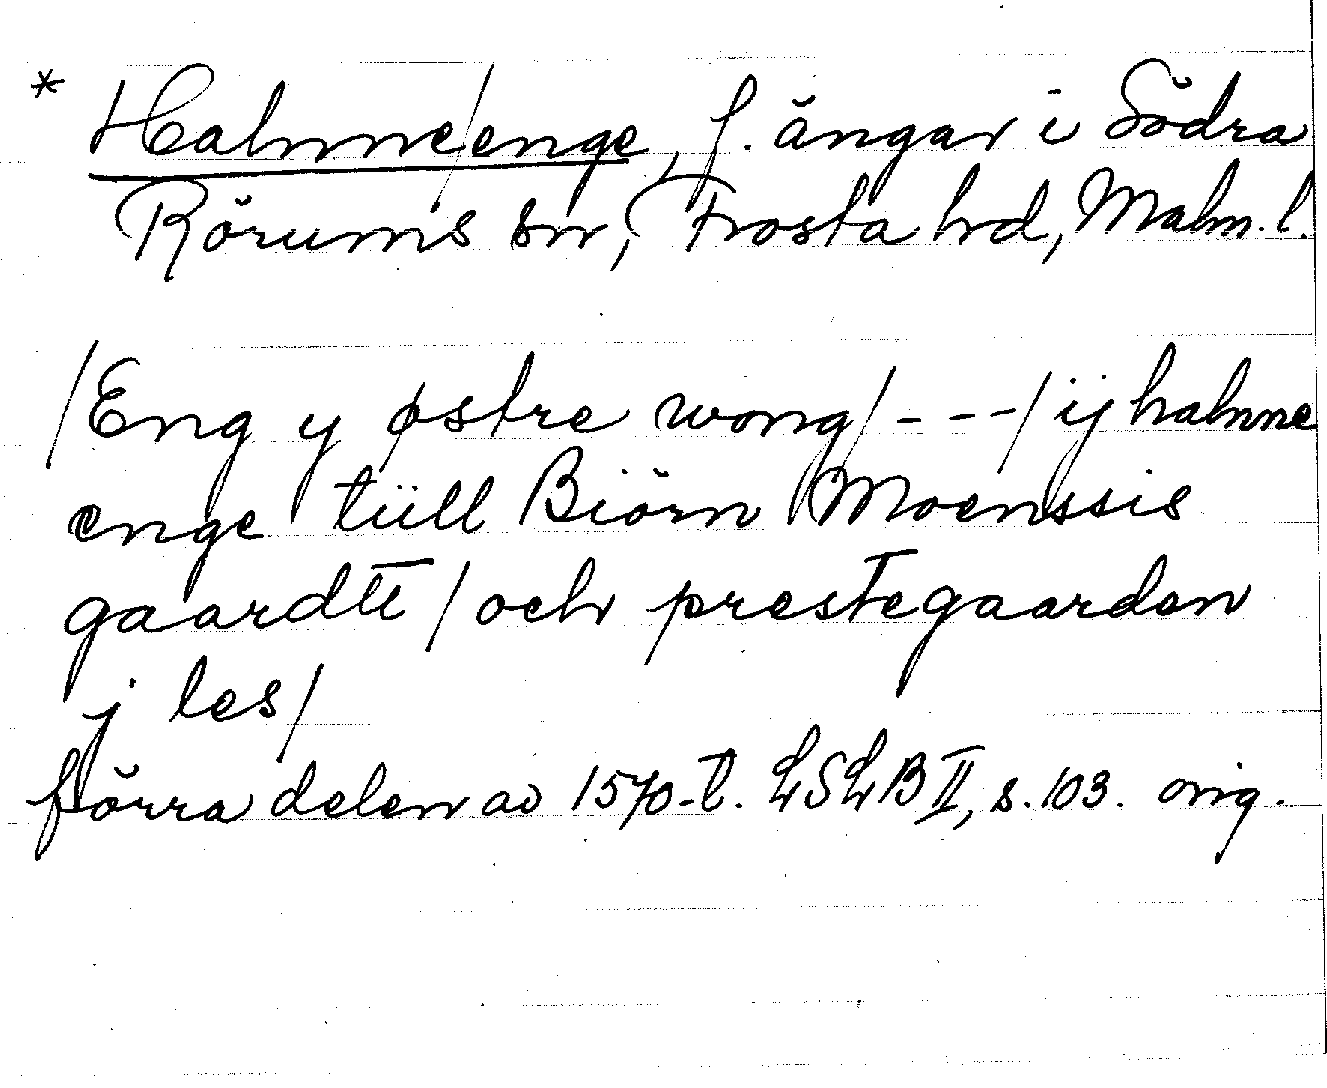 * Halmne/enge, f. ängar i Södra
Rörums sn, Frosta hd, Malm. l.
/Eng y østre wong/ - - - / ij halmne
enge tiill Biörn Moenssis
gaardtt / och prestegaarden
j les/
förra delen av 1570-t. LSLB II, s. 103. orig.